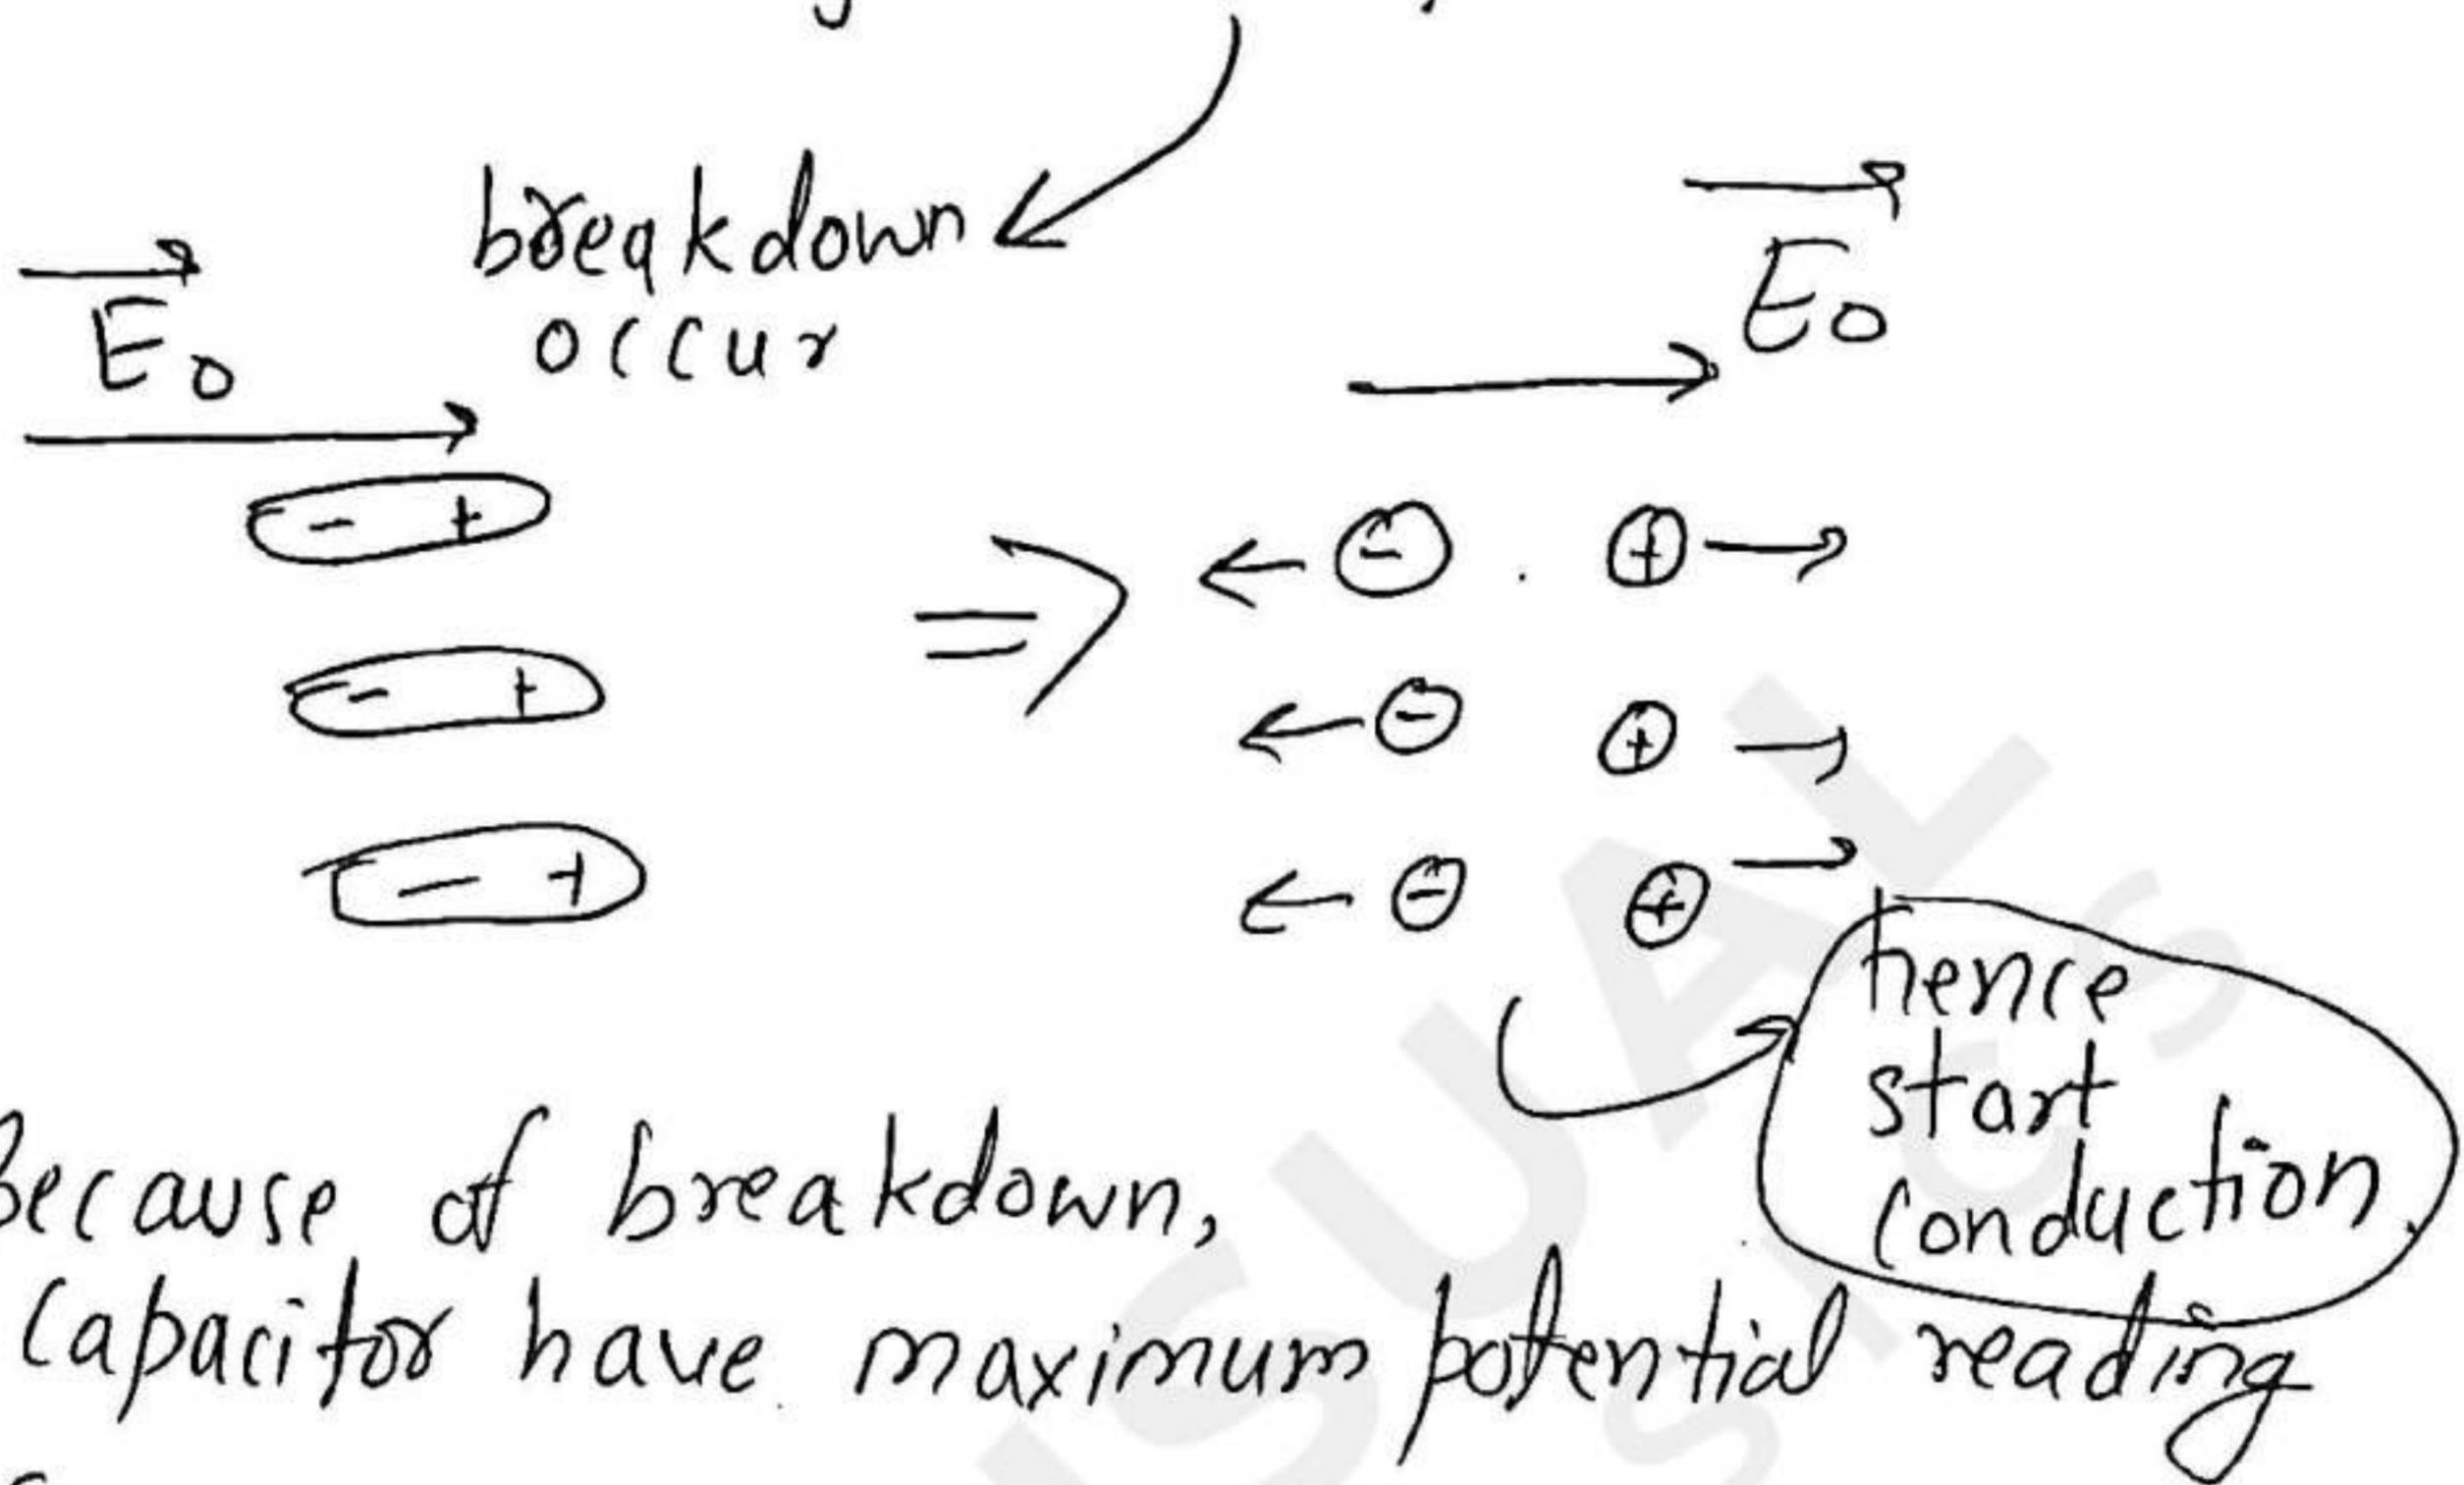 breakdown
occur
E₀
E₀
- +
- +
- +
=>
- +
- +
- +
hence
start
conduction.
Because of breakdown,
capacitor have maximum potential reading